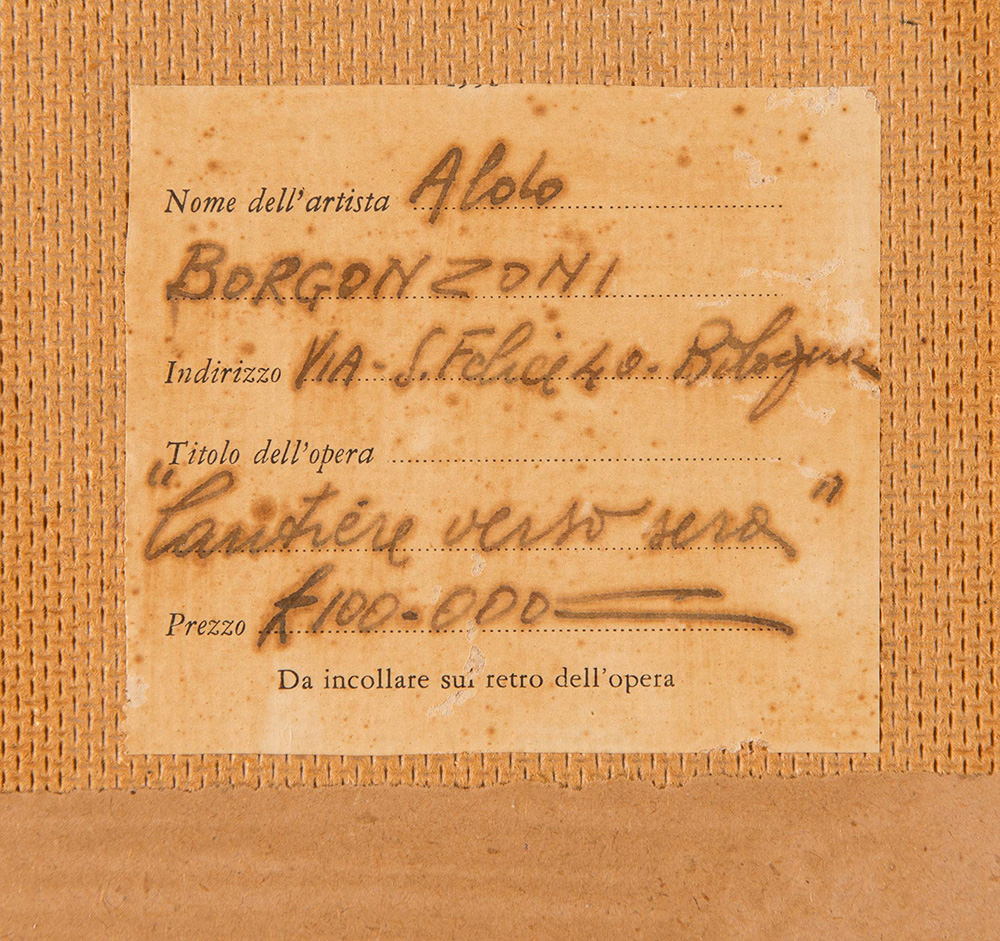 Nome dell'artista Aldo
BORGONZONI
Indirizzo VIA - S. Felice 40 - Bologna
Titolo dell'opera
"Cantiére verso sera"
Prezzo £100-000
Da incollare sul retro dell'opera